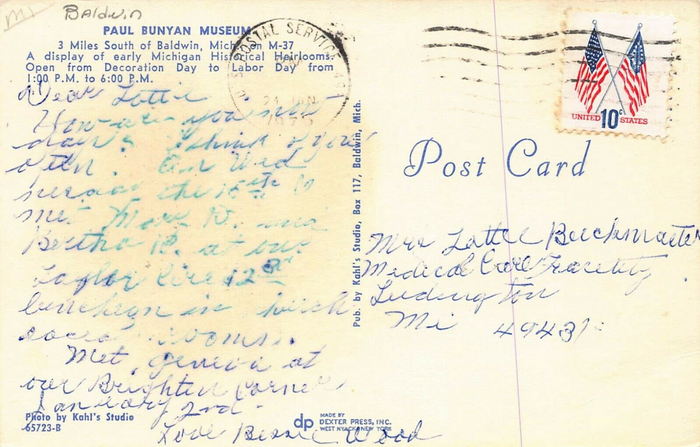 Mi
Baldwin
PAUL BUNYAN MUSEUM
3 Miles South of Baldwin, Mich. on M-37
A display of early Michigan Historical Heirlooms.
Open from Decoration Day to Labor Day from
1:00 P.M. to 6:00 P.M.
Dear Lottie
How are you now
days? I think of you
often. On Wed
nesday the 15th
met Mark and
Bertha B. at our
Taylor
luncheon in
rooms.
Met Geneva at
our Brighten Corner
January 2nd.
Love Bessie Wood
Photo by Kahl's Studio
65723-B
Pub. by Kahl's Studio, Box 117, Baldwin, Mich.
dp MADE BY
DEXTER PRESS, INC.
WEST NYACK, NEW YORK
U.S. POSTAL SERVICE
UNITED 10c STATES
Post Card
Mrs Lottie Buckmaster
Medical Care Facility
Ludington
Mi 49431